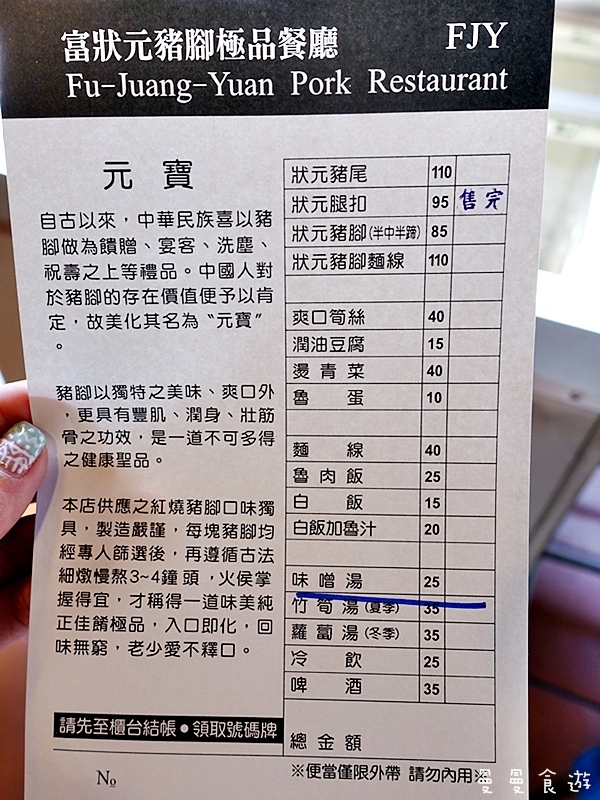 富狀元豬腳極品餐廳 FJY
Fu-Juang-Yuan Pork Restaurant
元寶
自古以來，中華民族喜以豬
腳做為饋贈、宴客、洗塵、
祝壽之上等禮品。中國人對
於豬腳的存在價值便予以肯
定，故美化其名為“元寶”
。
豬腳以獨特之美味、爽口外
，更具有豐肌、潤身、壯筋
骨之功效，是一道不可多得
之健康聖品。
本店供應之紅燒豬腳口味獨
具，製造嚴謹，每塊豬腳均
經專人篩選後，再遵循古法
細燉慢熬3~4鐘頭，火侯掌
握得宜，才稱得一道味美純
正佳餚極品，入口即化，回
味無窮，老少愛不釋口。
請先至櫃台結帳●領取號碼牌
No
狀元豬尾 110
狀元腿扣 95 售完
狀元豬腳(半中半蹄) 85
狀元豬腳麵線 110
爽口筍絲 40
潤油豆腐 15
燙青菜 40
魯蛋 10
麵線 40
魯肉飯 25
白飯 15
白飯加魯汁 20
味噌湯 25
竹筍湯(夏季) 35
蘿蔔湯(冬季) 35
冷飲 25
啤酒 35
總金額
※便當僅限外帶 請勿內用※
曼曼食遊